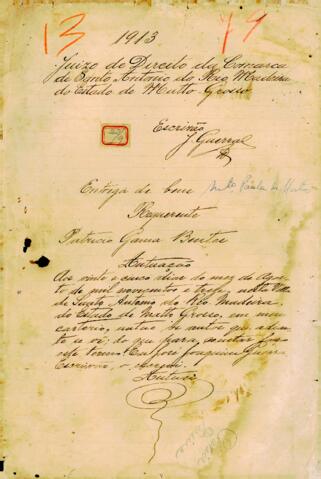 13
79
1913
Juizo de Direito da Comarca
de Santo Antonio do Rio Madeira
do Estado de Matto-Grosso
Escrivão
J. Guerra
Entrega de bem
Requerente
Patricio Gama Bentes
Autuação
Aos vinte e cinco dias do mez de Agos
to de mil novecentos e treze, nesta Villa
de Santo Antonio do Rio Madeira
do Estado de Matto Grosso, em meu
cartorio, autuo
se vê; do que para constar
este termo. Eu, José Joaquim Guerra
Escrivão, o
Autuei